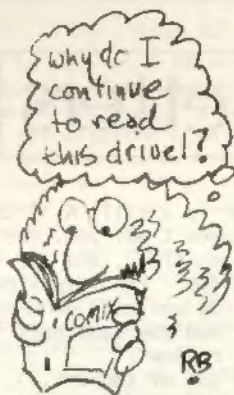 why do I
continue
to read
this drivel?
COMIX
RB